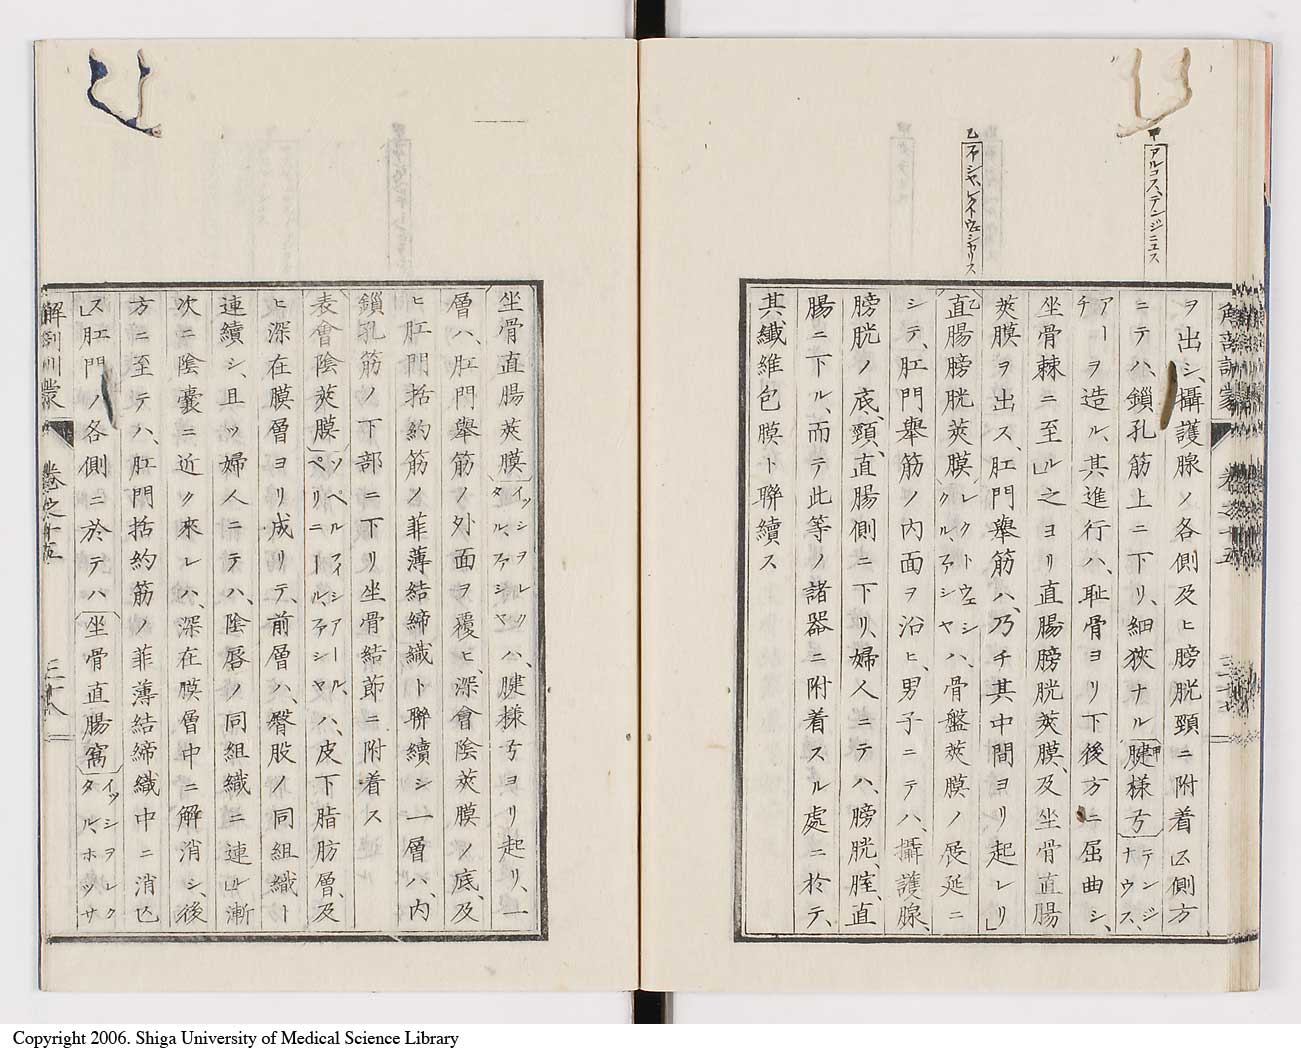 甲アルコス、テンジニュス
乙不シャ、レクトウェシカリス
解剖訓蒙 卷之十五
ヲ出シ、攝護腺ノ各側及ヒ膀胱頸ニ附着ス」側方
ニテハ、鎖孔筋上ニ下リ、細狹ナル腱樣弓テンジナウス、
アーチヲ造ル、其進行ハ、耻骨ヨリ下後方ニ屈曲シ、
坐骨棘ニ至ル」之ヨリ直腸膀胱莢膜、及坐骨直腸
莢膜ヲ出ス、肛門舉筋ハ、乃チ其中間ヨリ起レリ」
直腸膀胱莢膜レクトウェシクル、ファシヤハ、骨盤莢膜ノ展延ニ
シテ、肛門舉筋ノ内面ヲ沿ヒ、男子ニテハ、攝護腺、
膀胱ノ底、頸、直腸側ニ下リ、婦人ニテハ、膀胱、腟、直
腸ニ下ル、而テ此等ノ諸器ニ附着スル處ニ於テ、
其纎維包膜ト聯續ス
坐骨直腸莢膜イッシヲレクタル、ファシヤハ、腱樣弓ヨリ起リ、一
層ハ、肛門舉筋ノ外面ヲ覆ヒ、深會陰莢膜ノ底、及
ヒ肛門括約筋ノ菲薄結締織ト聯續シ一層ハ、内
鎖孔筋ノ下部ニ下リ坐骨結節ニ附着ス
表會陰莢膜ソペルフィシアール、ペリニール、ファシヤハ、皮下脂肪層、及
ヒ深在膜層ヨリ成リテ、前層ハ、臀股ノ同組織ト
連續シ、且ツ婦人ニテハ、陰唇ノ同組織ニ連ル」漸
次ニ陰嚢ニ近ク來レハ、深在膜層中ニ解消シ、後
方ニ至テハ、肛門括約筋ノ菲薄結締織中ニ消亡
ス」肛門ノ各側ニ於テハ坐骨直腸窩イッシヲレクタル、ホッサ
解剖訓蒙 卷之十五 三十八
Copyright 2006. Shiga University of Medical Science Library